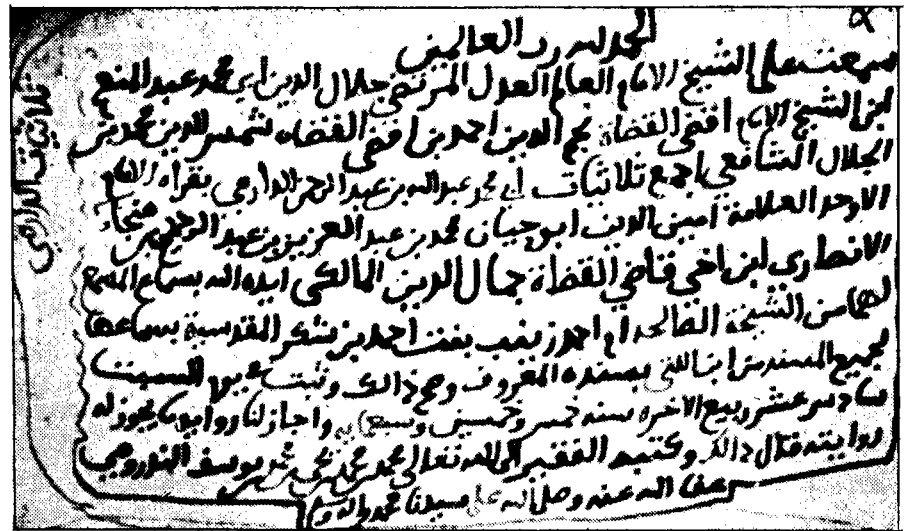 الحمد لله رب العالمين
سمعت على الشيخ الامام العالم العدل المرتضى جلال الدين ابي محمد عبد المنعم
ابن الشيخ الامام اقضى القضاة نجم الدين احمد بن اقضى القضاة شمس الدين محمد بن
الجلال الشافعي اجمع ثلاثيات ابي محمد عبد الله بن عبد الرحمن الدارمي بقراءة الامام
الاوحد العلامة امين الدين ابو حيان محمد بن عبد العزيز بن عبد الرحيم بن
الانصاري ابن اخي قاضي القضاة جمال الدين المالكي ايده الله بسماع المسمع
لها من الشيخة الصالحة ام احمد زينب بنت احمد بن شكر المقدسية بسماعها
لجميع المسند من ابن اللتي بسنده المعروف وصح ذالك وثبت عشية السبت
سادس عشر ربيع الاخر سنة خمس وخمسين وسبعمايه واجاز لنا رواية ما يجوز له
روايته قال ذالك وكتبه الفقير الى الله تعالى محمد بن محمد بن يحيى يوسف الندرومي
عفا الله عنه وصلى الله على سيدنا محمد واله وسلم
ثلاثيات الدارمي